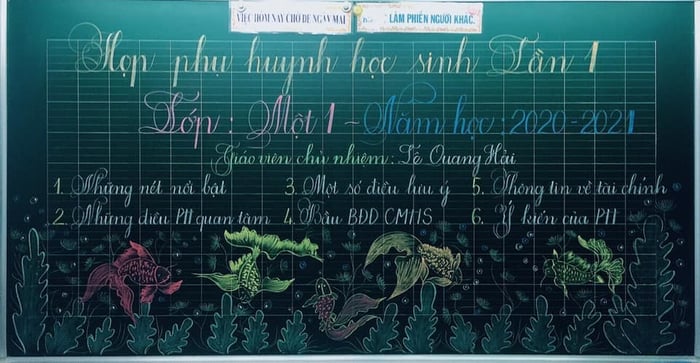 VIỆC HÔM NAY CHỚ ĐỂ NGÀY MAI
LÀM PHIỀN NGƯỜI KHÁC.
Họp phụ huynh học sinh Lần 1
Lớp : Một 1 - Năm học : 2020-2021
Giáo viên chủ nhiệm : Lê Quang Hải
1. Những nét nổi bật
2. Những điều PH quan tâm
3. Một số điều lưu ý
4. Bầu BĐD CMHS
5. Thông tin về tài chính
6. Ý kiến của PH